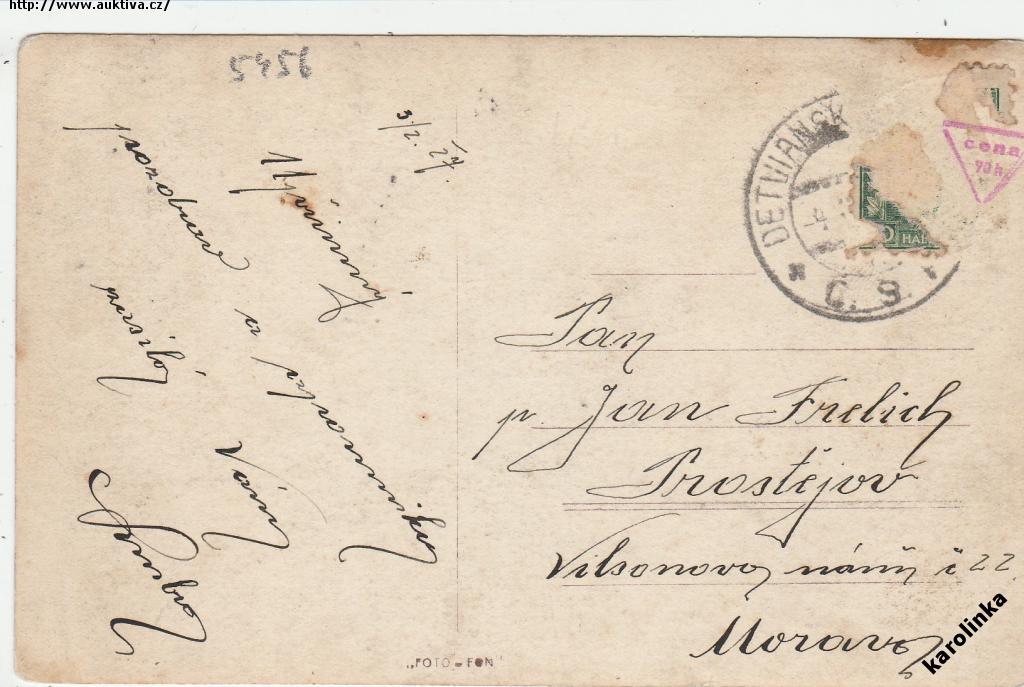 http://www.auktiva.cz/
5456
3/2. 27.
Upřímný
pozdrav a vzpomínku
Vám
posílá
DETVIANSK
Č. S.
HAL
cena
70 h.
Pan
p. Jan Frelich
Prostějov
Vilsonovo nám č 22
Morava
„FOTO-FON"
karolinka